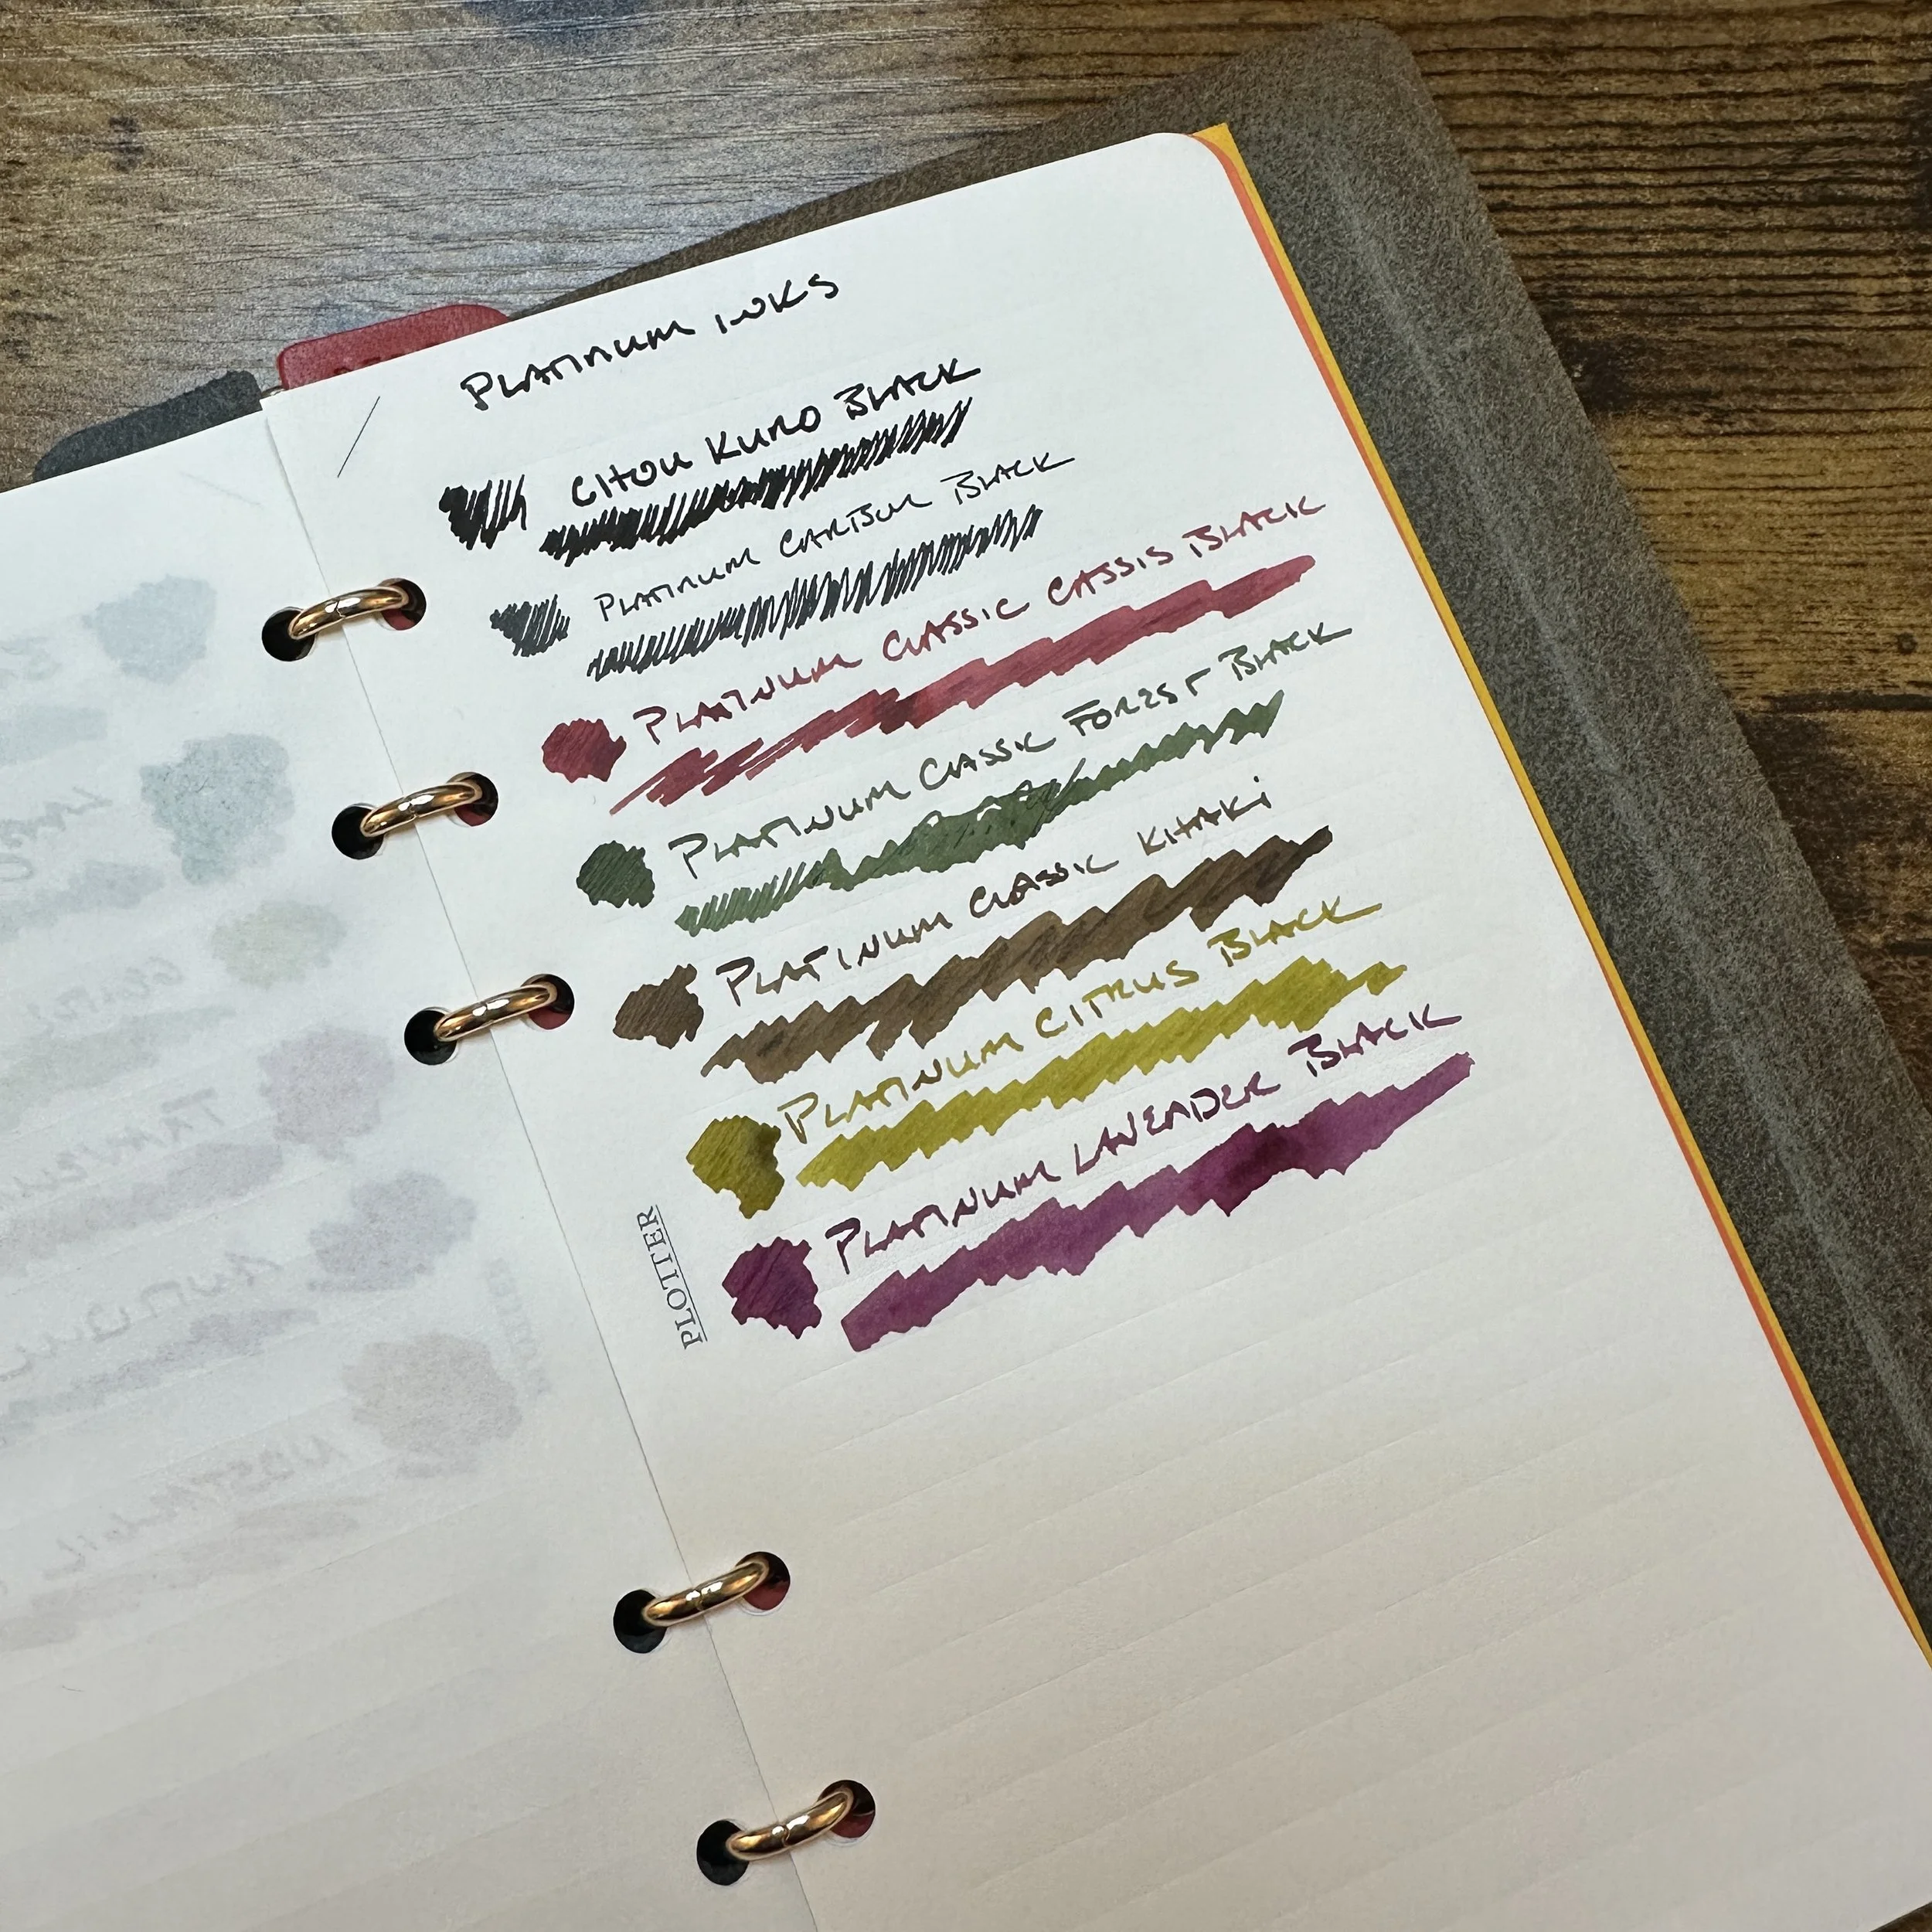 PLATINUM INKS
CHOU KURO BLACK
PLATINUM CARBON BLACK
PLATINUM CLASSIC CASSIS BLACK
PLATINUM CLASSIC FOREST BLACK
PLATINUM CLASSIC KHAKI
PLATINUM CITRUS BLACK
PLATINUM LAVENDER BLACK
PLOTTER